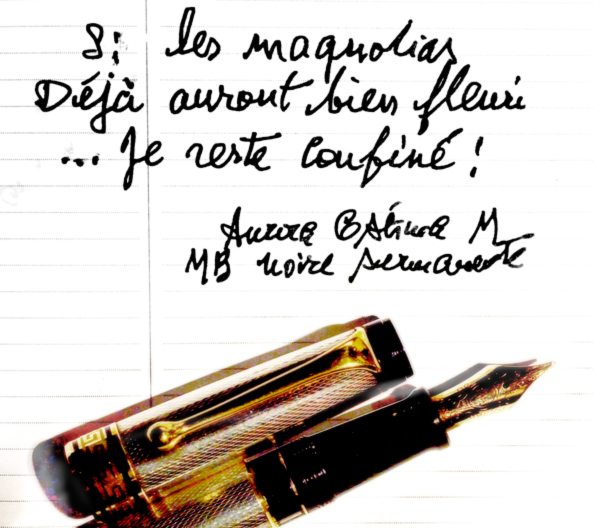 Si les magnolias
Déjà auront bien fleuri
... Je reste confiné !
Aurora Optima M
MB noire permanente